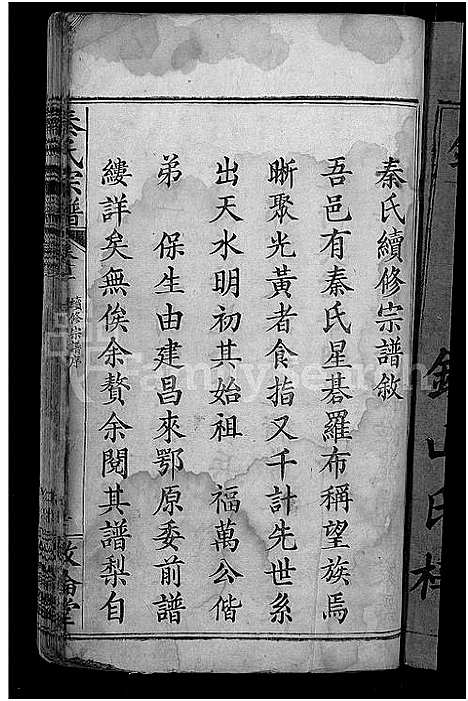 秦氏續修宗譜敘
吾邑有秦氏星碁羅布稱望族焉
晰聚光黃者食指又千計先世系
出天水明初其始祖　福萬公偕
弟　保生由建昌來鄂原委前譜
縷詳矣無俟余贅余閱其譜梨自
秦氏宗譜
續修宗譜序
敦倫堂
familysearch